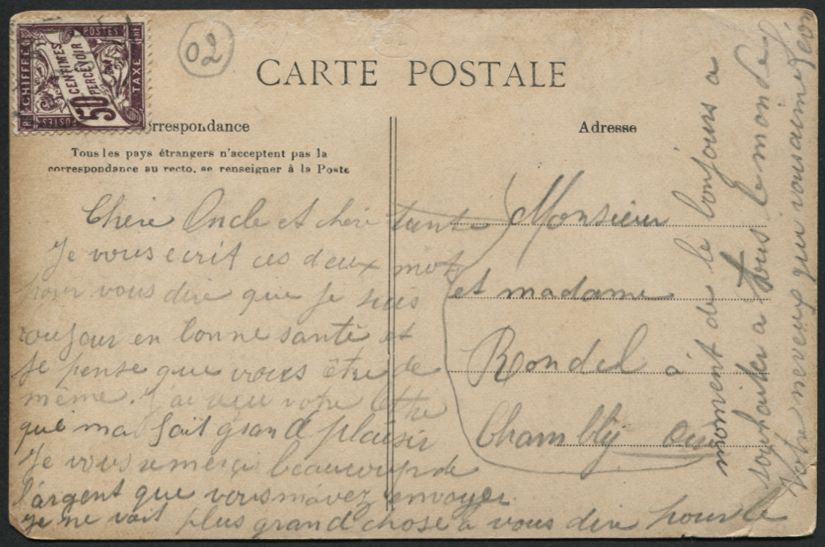 02
A CHIFFRE
POSTES
TAXE
50
CENTIMES
A PERCEVOIR
CARTE POSTALE
rrespondance
Adresse
Tous les pays étrangers n'acceptent pas la
correspondance au recto, se renseigner à la Poste
Chère Oncle et chère tante
Je vous ecrit ces deux mot
pour vous dire que je suis
toujour en bonne santé et
je pense que vous être de
même. j'ai reçu votre lettre
que ma fait grand plaisir
Je vous remerçi beaucoup de
l'argent que vous m'avez envoyer
je ne voit plus grand chose à vous dire pour le
moment de le bonjours a
souhaiter a tous le monde
Votre neveux qui vous aime Léon
Monsieur
et madame
Rondel à
Chambly Oise